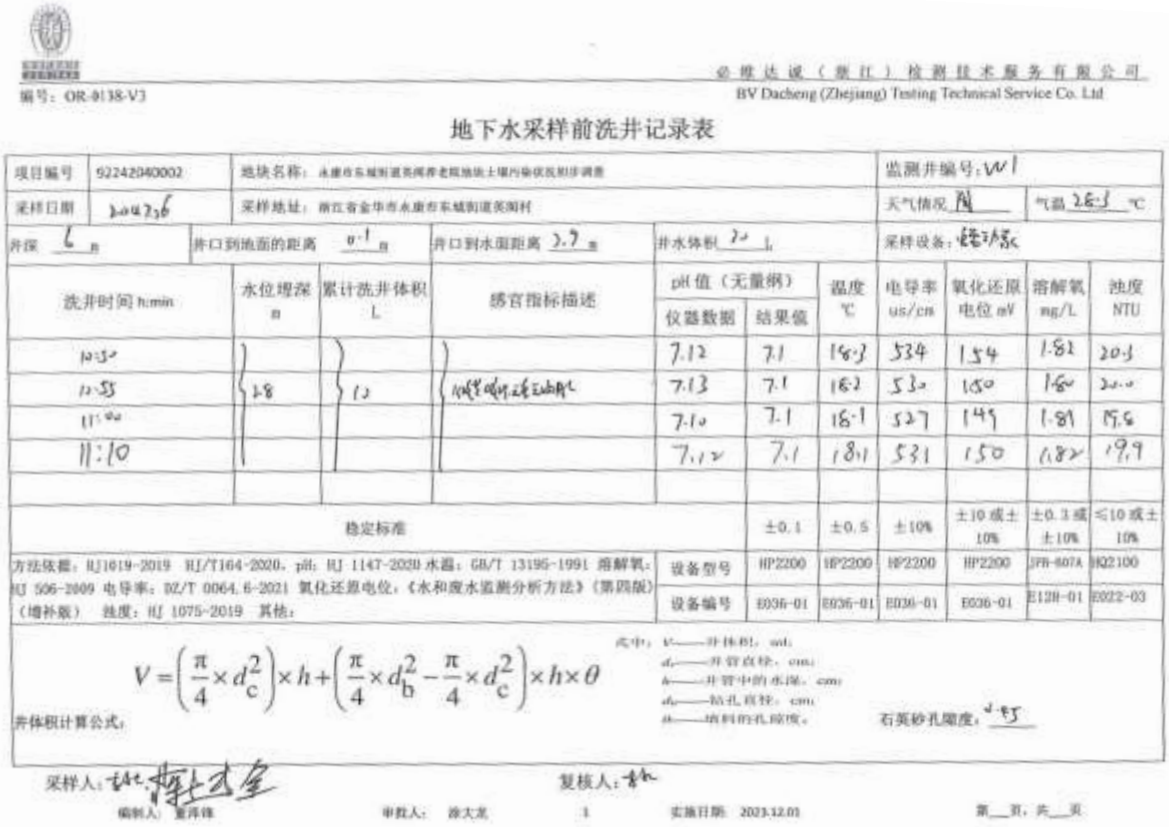 必维达诚（浙江）检测技术服务有限公司
编号：OR-0138-V3
BV Dacheng (Zhejiang) Testing Technical Service Co. Ltd
地下水采样前洗井记录表
项目编号 92242040002 地块名称：永康市东城街道英阁养老院地块土壤污染状况初步调查 监测井编号：W1
采样日期 采样地址：浙江省金华市永康市东城街道英阁村 天气情况 阴 气温 28.3 ℃
井深 6 m 井口到地面的距离 0.1 m 井口到水面距离 2.9 m 井水体积 20 L 采样设备：
洗井时间 h:min 水位埋深 m 累计洗井体积 L 感官指标描述 pH 值（无量纲） 温度 ℃ 电导率 us/cm 氧化还原电位 mV 溶解氧 mg/L 浊度 NTU
仪器数据 结果值
10:50 7.12 7.1 18.3 534 154 1.82 20.3
10:55 2.8 12 7.13 7.1 18.2 530 150 1.80 20.0
11:00 7.10 7.1 18.1 527 149 1.81 19.8
11:10 7.12 7.1 18.1 531 150 1.82 19.9
稳定标准 ±0.1 ±0.5 ±10% ±10 或±10% ±0.3 或±10% ≤10 或±10%
方法依据：HJ1019-2019 HJ/T164-2020，pH：HJ 1147-2020 水温：GB/T 13195-1991 溶解氧：
HJ 506-2009 电导率：DZ/T 0064.6-2021 氧化还原电位：《水和废水监测分析方法》（第四版）
（增补版） 浊度：HJ 1075-2019 其他：
设备型号 HP2200 HP2200 HP2200 HP2200 JPB-607A HQ2100
设备编号 E036-01 E036-01 E036-01 E036-01 E128-01 E022-03
V = (π/4 × d_c^2) × h + (π/4 × d_b^2 − π/4 × d_c^2) × h × θ
井体积计算公式：
式中：V——井体积，ml；
d_c——井管直径，cm；
h——井管中的水深，cm；
d_b——钻孔直径，cm；
θ——填料的孔隙度。
石英砂孔隙度：0.45
采样人： 复核人：
编制人： 董泽锋 审批人： 涂大龙 1 实施日期： 2023.12.01 第__页，共__页